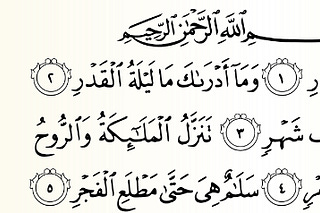 ـمِ ٱللَّهِ ٱلرَّحْمَٰنِ ٱلرَّحِيمِ
رِ ١ وَمَآ أَدْرَىٰكَ مَا لَيْلَةُ ٱلْقَدْرِ ٢
شَهْرٍ ٣ تَنَزَّلُ ٱلْمَلَٰٓئِكَةُ وَٱلرُّوحُ
ـرٍ ٤ سَلَٰمٌ هِىَ حَتَّىٰ مَطْلَعِ ٱلْفَجْرِ ٥